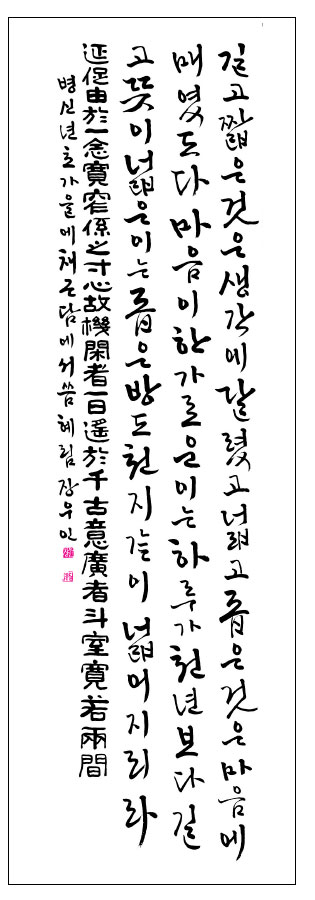 길고짧은것은생각에달렸고넓고좁은것은마음에
매였도다마음이한가로운이는하루가천년보다길
고뜻이넓은이는좁은방도천지같이넓어지리라
延促由於一念寬窄係之寸心故機閑者一日遙於千古意廣者斗室寬若兩間
병신년초가을에채근담에서씀혜림장우인